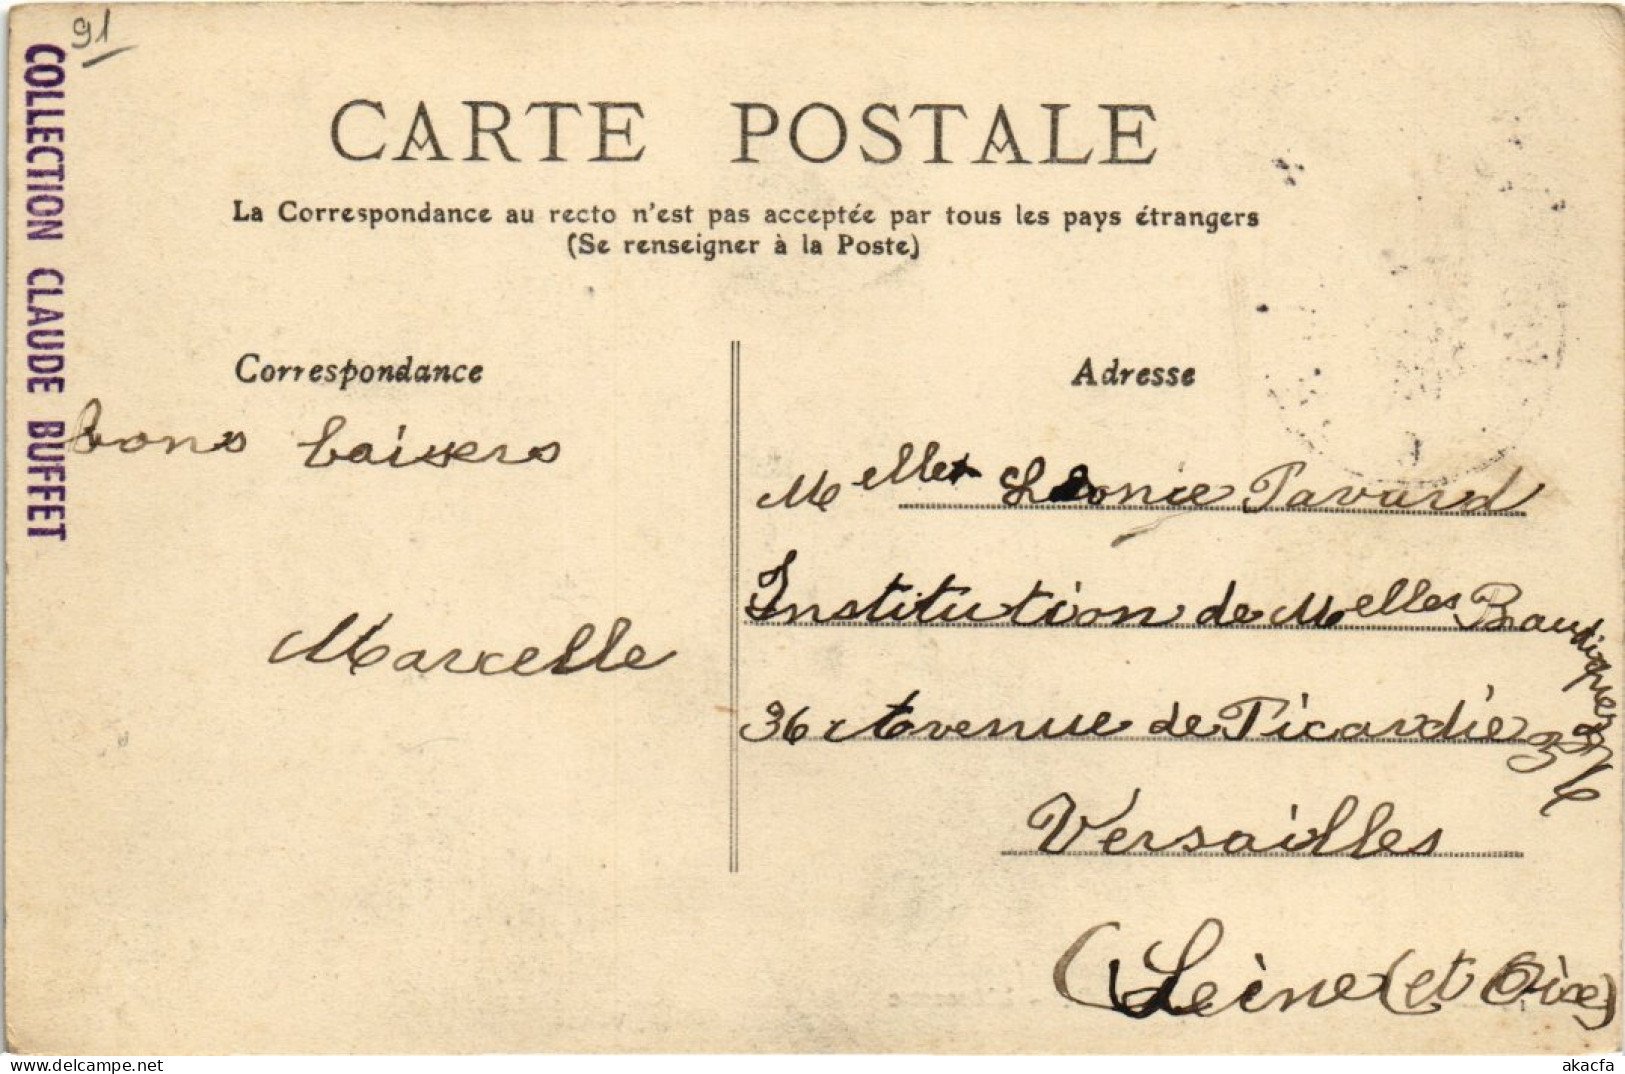 91
COLLECTION CLAUDE BUFFET
CARTE POSTALE
La Correspondance au recto n'est pas acceptée par tous les pays étrangers
(Se renseigner à la Poste)
Correspondance
Adresse
bons baisers
Marcelle
Melle Léonie Pavard
Institution de Melles
36 Avenue de Picardie 36
Versailles
(Seine (et Oise)
akacfa